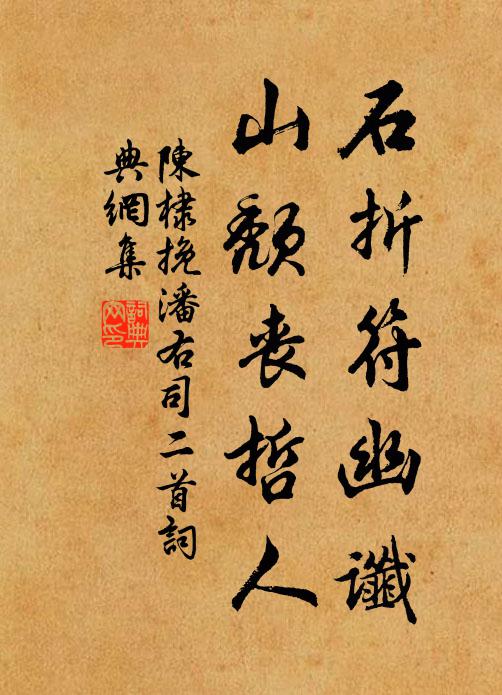 石折符幽讖
山頹喪哲人
陳棣挽潘右司二首詞
典網集
詞典網印